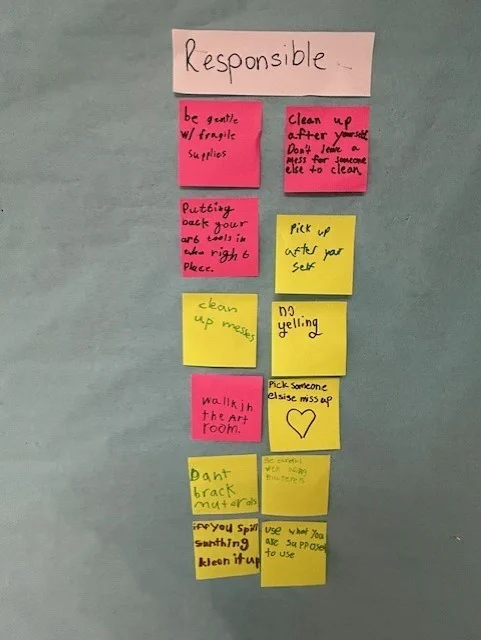 Responsible
be gentle
w/ fragile
supplies
Clean up
after yourself
Don't leave a
mess for someone
else to clean
Putting
back your
art tools in
right
Place.
Pick up
after your
self
clean
up messes
no
yelling
walk in
the Art
room.
Pick someone
elsise miss up
Dant
brack
materols
Be
iff you spill
sumthing
kleen it up
use what you
are supposet
to use